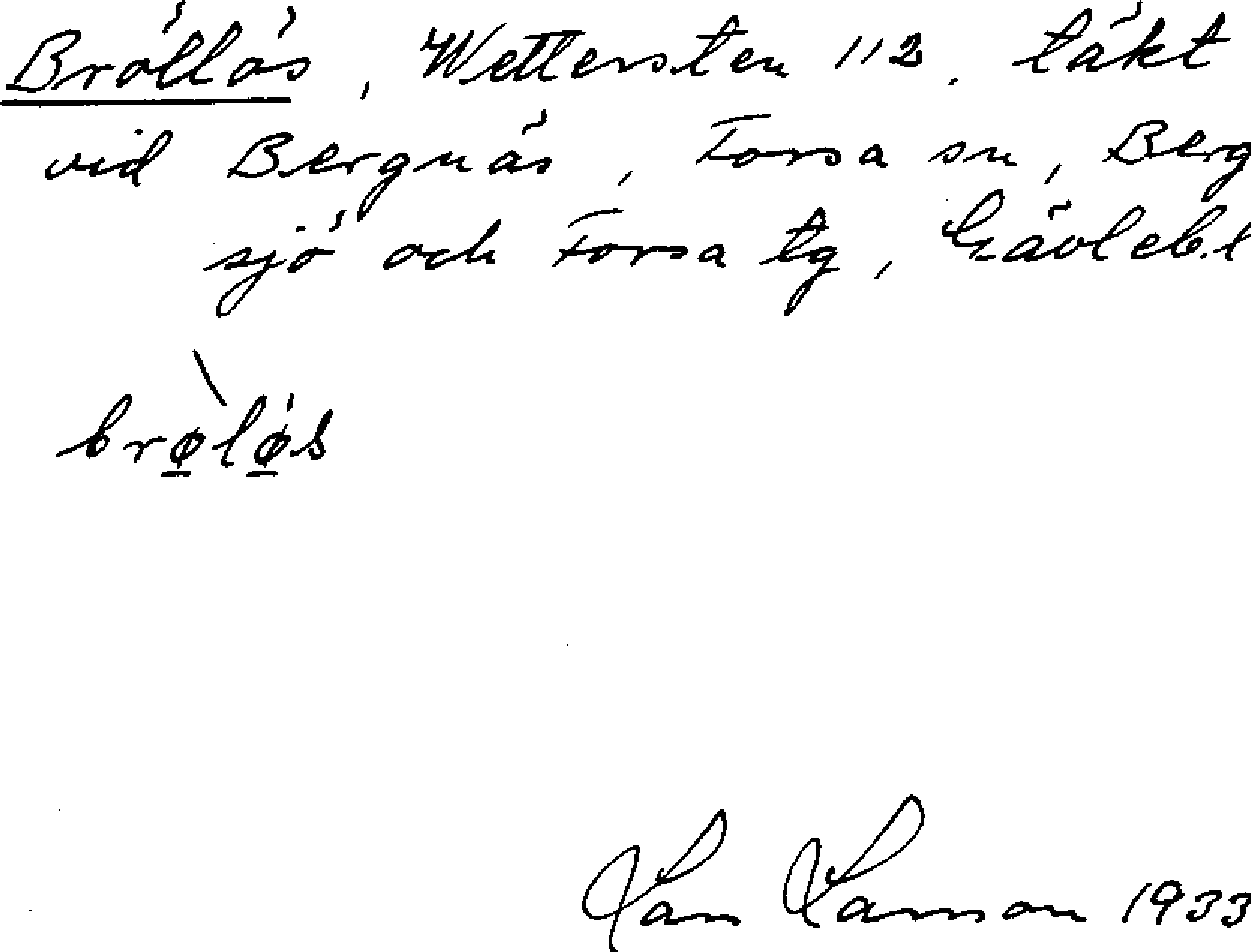 Bröllös, Wettersten 112. täkt
vid Bergnäs, Forsa sn, Berg
sjö och Forsa tg, Gävlebl
brø̲lø̲s
Lars Larsson 1933